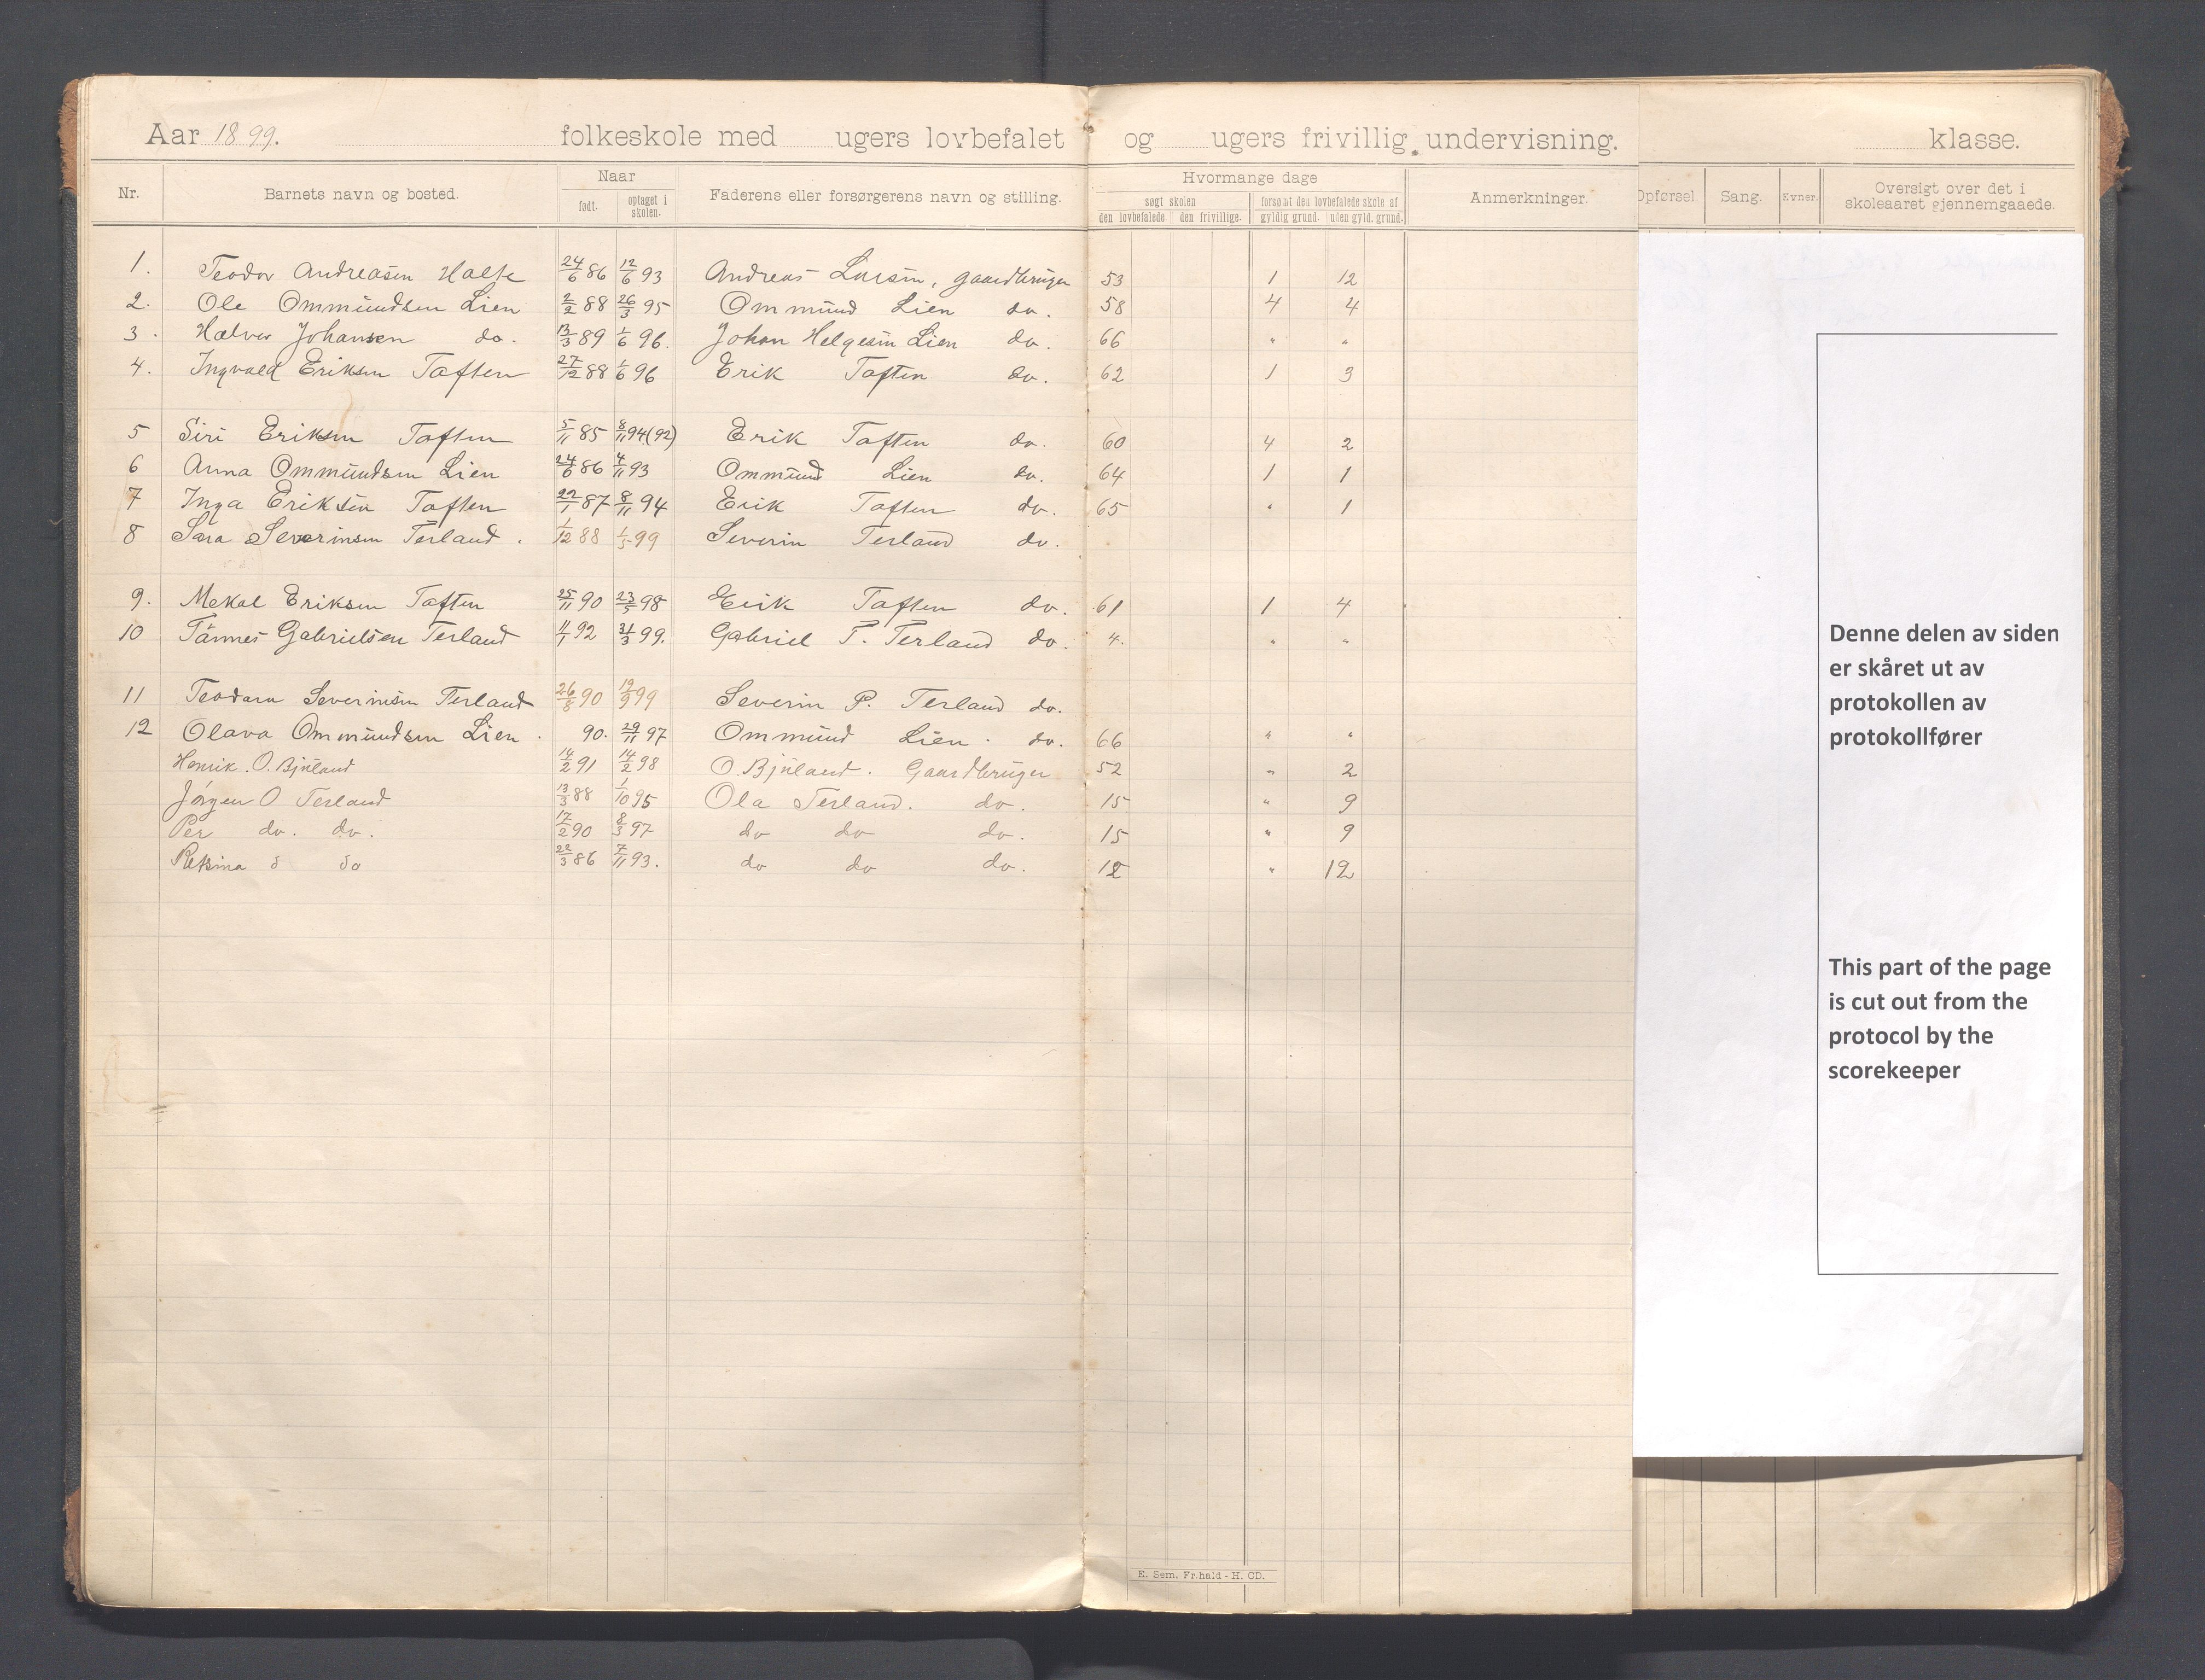 Aar 1899. folkeskole med ugers lovbefalet og ugers frivillig undervisning. klasse.
Nr. Barnets navn og bosted. Naar født. optaget i skolen. Faderens eller forsørgerens navn og stilling. Hvormange dage søgt skolen den lovbefalede den frivillige. forsømt den lovbefalede skole af gyldig grund. uden gyld. grund. Anmerkninger. Opførsel Sang. Evner. Oversigt over det i skoleaaret gjennemgaaede.
1. Teodor Andreasen 24/6 86 12/6 93 Andreas Larsen, gaardbruger 53 1 12
2. Ole Ommundsen Lien 2/2 88 26/3 95 Ommund Lien do. 58 4 4
3. Halvor Johansen do. 13/3 89 1/6 96. Johan Helgesen Lien do. 66 " "
4. Ingvald Eriksen Taften 27/12 88 1/6 96 Erik Taften do. 62 1 3
5 Siri Eriksen Taften 5/11 85 8/11 94 (92) Erik Taften do. 60 4 2
6 Anna Ommundsen Lien 24/6 86 4/11 93 Ommund Lien do. 64 1 1
7 Inga Eriksen Taften 22/1 87 8/11 94 Erik Taften do. 65 " 1
8 Sara Severinsen Terland. 1/12 88 1/5 99 Severin Terland do.
9. Mekal Eriksen Taften 25/11 90 23/5 98 Erik Taften do. 61 1 4
10 Tønnes Gabrielsen Terland 11/1 92 21/3 99. Gabriel T. Terland do. 4. " "
11 Teodara Severinsen Terland 26/8 90 19/9 99 Severin P. Terland do.
12 Olava Ommundsen Lien. 90. 29/11 97 Ommund Lien. do. 66 " "
Henrik. O. Bjuland 14/2 91 14/2 98 O. Bjuland. Gaardbruger 52 " 2
Jørgen O Terland 13/3 88 1/10 95 Ola Terland. do. 15 " 9
Per do. do. 17/2 90 8/3 97 do do do. 15 " 9
Reksina d do 22/3 86 7/11 93. do do do. 12 " 12
Denne delen av siden
er skåret ut av
protokollen av
protokollfører
This part of the page
is cut out from the
protocol by the
scorekeeper
E. Sem, Fr.hald - H. CD.